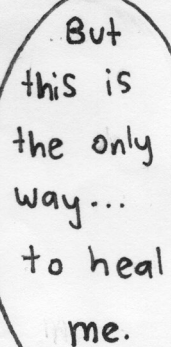 But
this is
the only
way...
to heal
me.